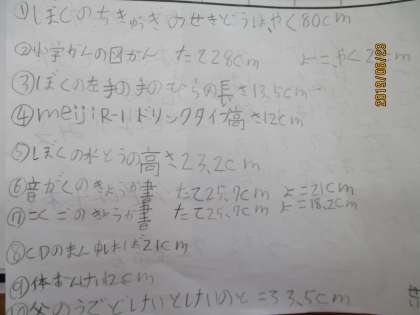 ①ぼくのちきゅうぎのせきどうは、やく80cm
②小学かんの図かん たて28cm よこやく2 cm
③ぼくの左手の手のひらの長さ13.5cm
④meijiR-1ドリンクタイプ高さ12cm
⑤ぼくの水とうの高さ23.2cm
⑥音がくのきょうか書 たて25.7cm よこ21cm
⑦こくごのきょうか書 たて25.7cm よこ18.2cm
⑧CDの 21cm
⑨体おんけい12cm
⑩父のうでどけいとけいのと 3.5cm
2019/06/23